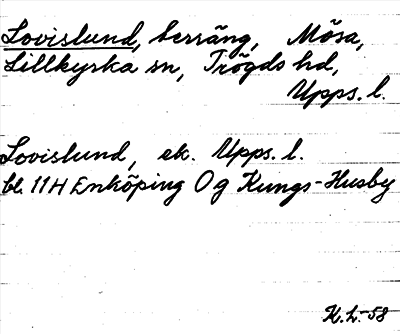 Lovislund, herräng, Mösa,
Lillkyrka sn, Trögds hd,
Upps. l.
Lovislund, ek. Upps. l.
bl. 11H Enköping O g Kungs-Husby
K.L.-58